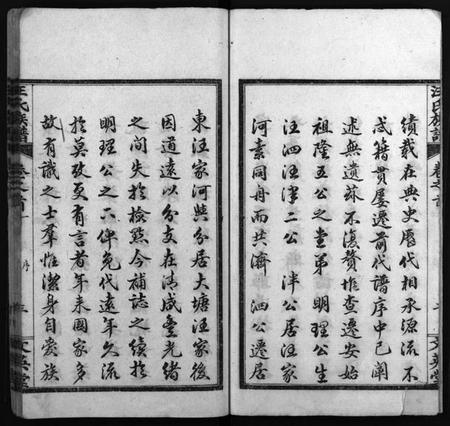 績載在典史歷代相承源流不
忒籍貫屢遷前代譜序中已闡
述無遺茲不復贅惟查遷安始
祖隆五公之堂弟　明理公生
汪泗汪泮二公　泮公居汪家
河素同舟而共濟　泗公遷居
汪氏族譜
卷之首
文英堂
東汪家河與分居大塘汪家後
因道遠以分支在清咸豐光緒
之間失於檢點今補誌之續於
明理公之下俾免代遠年久流
於莫攷更有言者年來國家多
故有識之士羣惟潔身自愛族
汪氏族譜
卷之首
序
文英堂